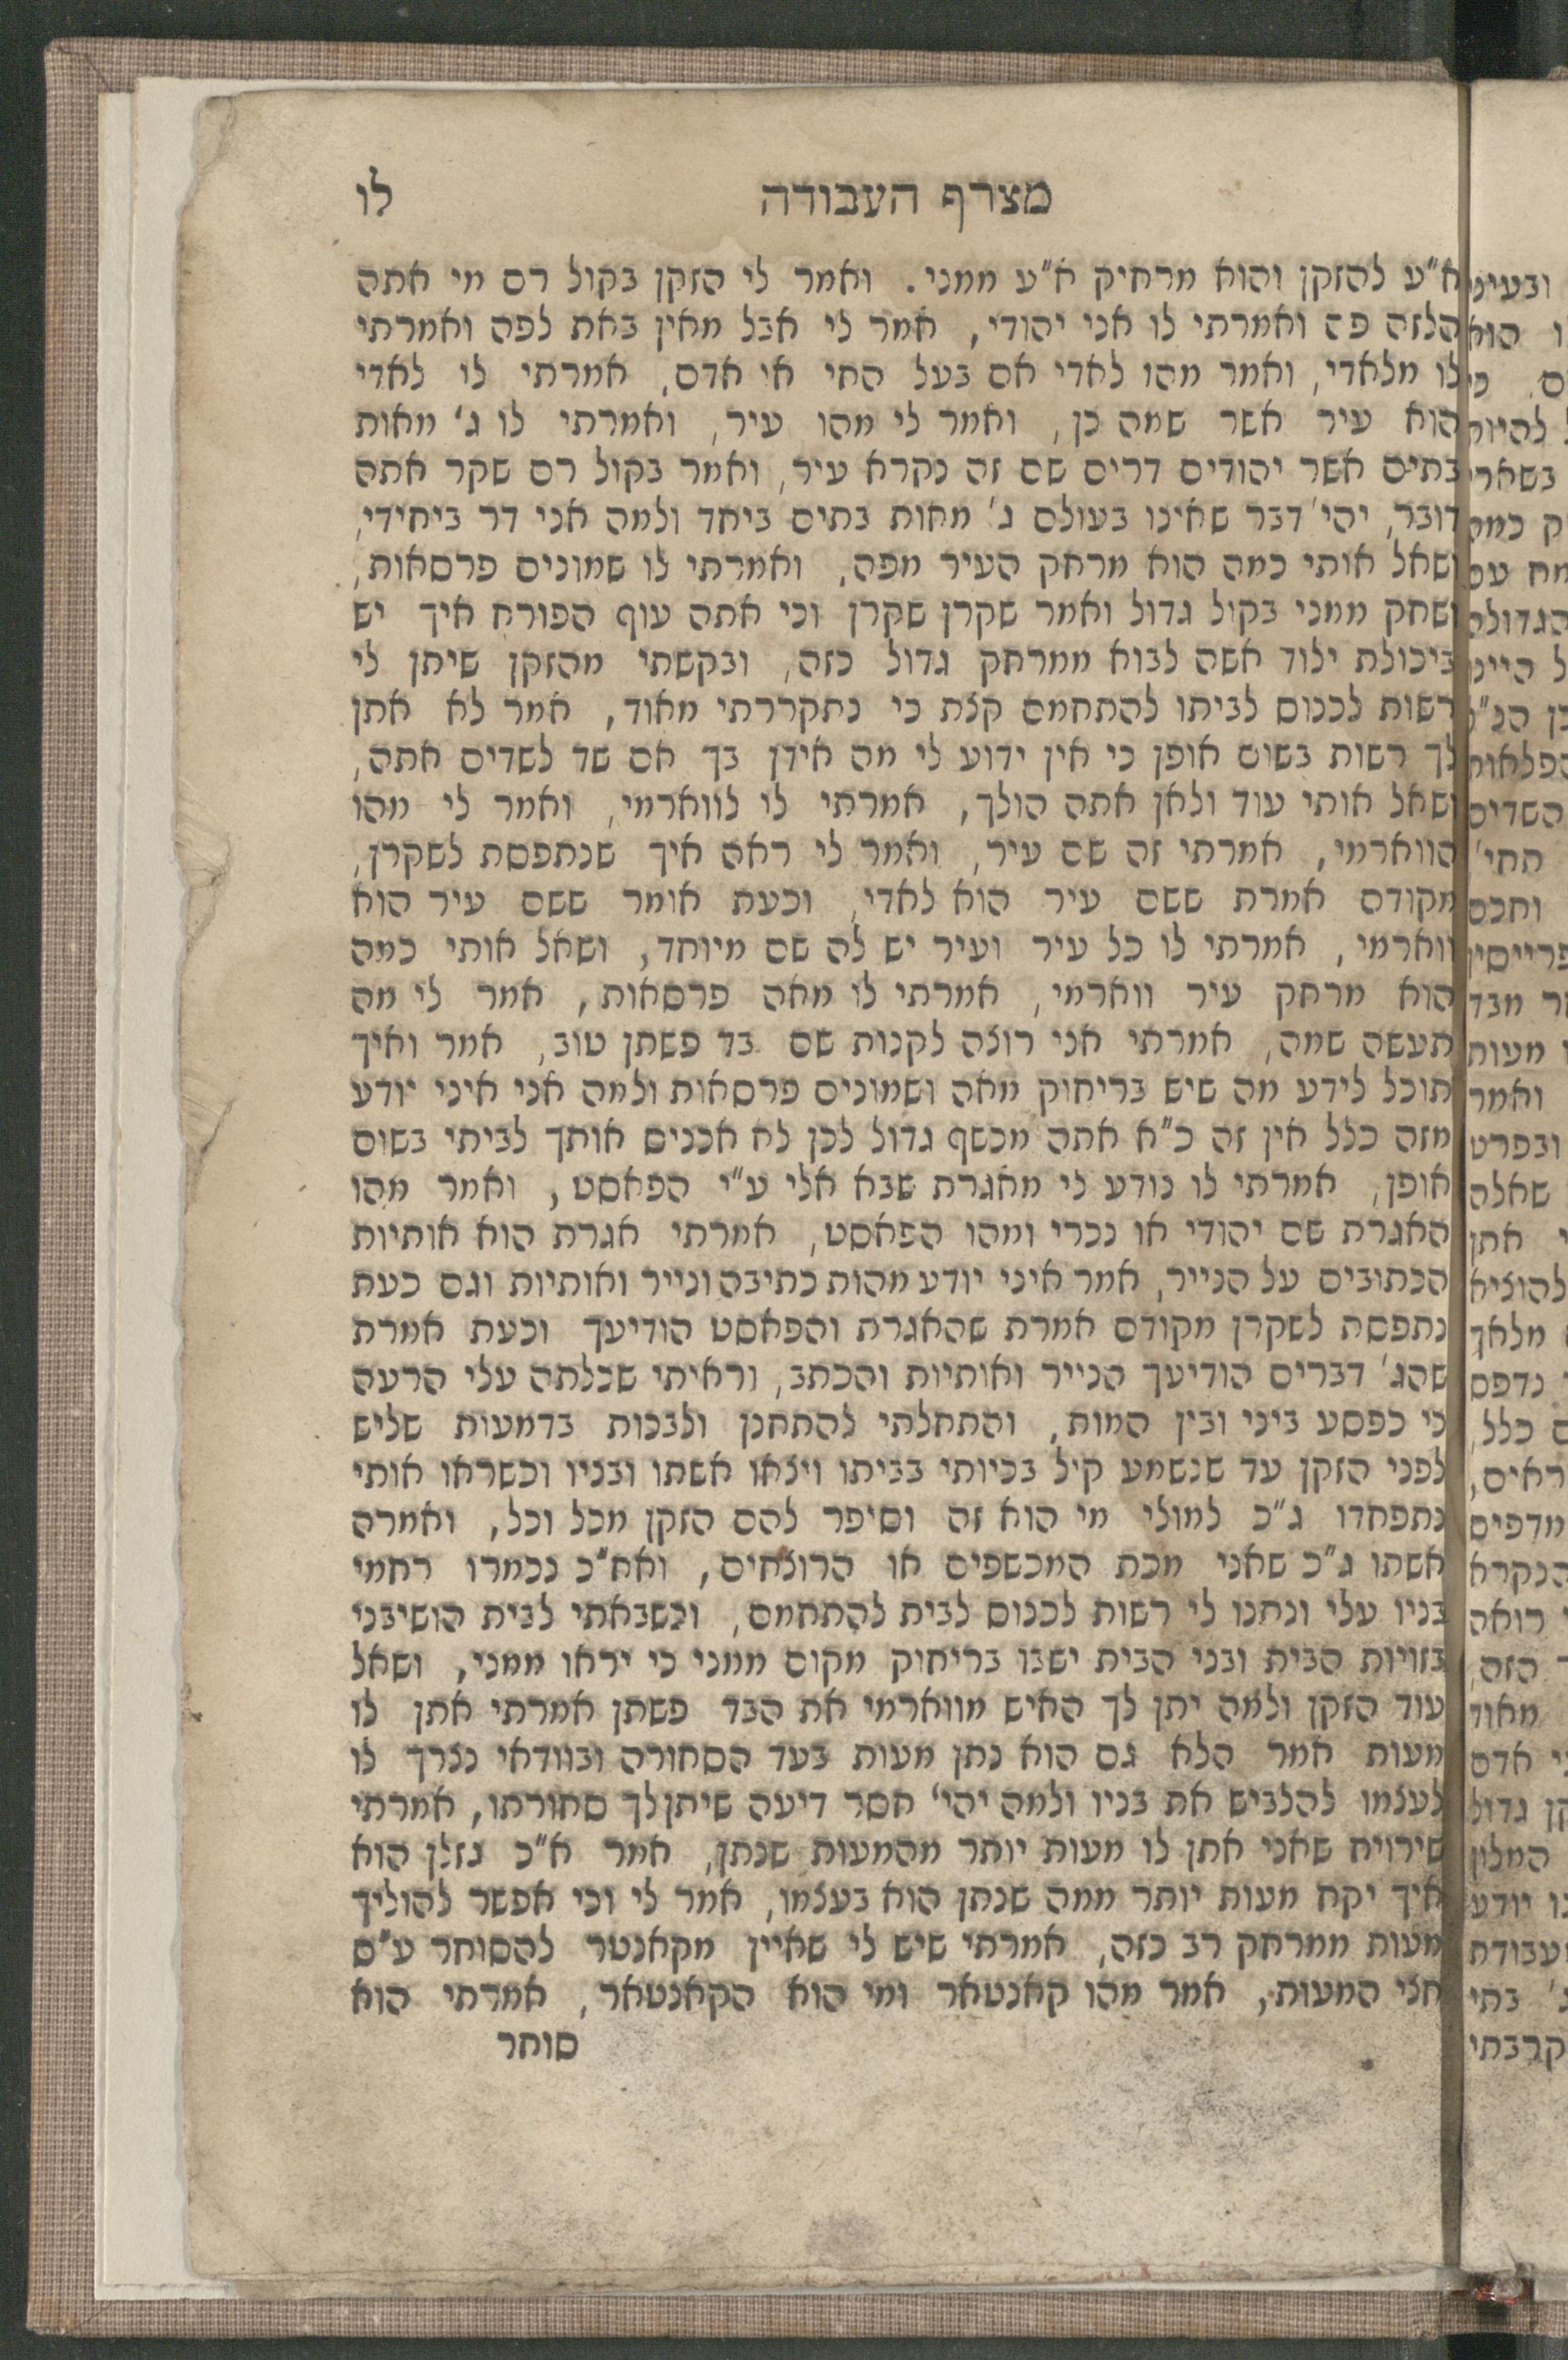 מצרף העבודה
לו
א"ע להזקן והוא מרחיק א"ע ממני. ואמר לי הזקן בקול רם מי אתה
הלזה פה ואמרתי לו אני יהודי, אמר לי אבל מאין באת לפה ואמרתי
לו מלאדי, ואמר מהו לאדי אם בעל החי או אדם, אמרתי לו לאדי
הוא עיר אשר שמה כן, ואמר לי מהו עיר, ואמרתי לו ג' מאות
בתים אשר יהודים דרים שם זה נקרא עיר, ואמר בקול רם שקר אתה
דובר, יהי' דבר שאינו בעולם ג' מאות בתים ביחד ולמה אני דר ביחידי,
ושאל אותי כמה הוא מרחק העיר מפה, ואמרתי לו שמונים פרסאות,
ושחק ממני בקול גדול ואמר שקרן שקרן וכי אתה עוף הפורח איך יש
ביכולת ילוד אשה לבוא ממרחק גדול כזה, ובקשתי מהזקן שיתן לי
רשות לכנום לביתו להתחמם קצת כי נתקררתי מאוד, אמר לא אתן
לך רשות בשום אופן כי אין ידוע לי מה אידן בך אם שד לשדים אתה,
ושאל אותי עוד ולאן אתה הולך, אמרתי לו לווארמי, ואמר לי מהו
הווארמי, אמרתי זה שם עיר, ואמר לי ראה איך שנתפסת לשקרן,
מקודם אמרת ששם עיר הוא לאדי, וכעת אומר ששם עיר הוא
ווארמי, אמרתי לו כל עיר ועיר יש לה שם מיוחד, ושאל אותי כמה
הוא מרחק עיר ווארמי, אמרתי לו מאה פרסאות, אמר לי מה
תעשה שמה, אמרתי אני רוצה לקנות שם בד פשתן טוב, אמר ואיך
תוכל לידע מה שיש בריחוק מאה ושמונים פרסאות ולמה אני איני יודע
מזה כלל אין זה כ"א אתה מכשף גדול לכן לא אכנים אותך לביתי בשום
אופן, אמרתי לו נודע לי מאגרת שבא אלי ע"י הפאסט, ואמר מהו
האגרת שם יהודי או נכרי ומהו הפאסט, אמרתי אגרת הוא אותיות
הכתובים על הנייר, אמר איני יודע מהות כתיבה ונייר ואותיות וגם כעת
נתפסת לשקרן מקודם אמרת שהאגרת והפאסט הודיעך וכעת אמרת
שהג' דברים הודיעך הנייר ואותיות והכתב, וראיתי שכלתה עלי הרעה
כי כפסע ביני ובין המות, והתחלתי להתחנן ולבכות בדמעות שליש
לפני הזקן עד שנשמע קיל בכיותי בביתו ויצאו אשתו ובניו וכשראו אותי
נתפחדו ג"כ למולי מי הוא זה וסיפר להם הזקן מכל וכל, ואמרה
אשתו ג"כ שאני מכת המכשפים או הרוצחים, ואח"כ נכמרו רחמי
בניו עלי ונתנו לי רשות לכנום לבית להתחמם, וכשבאתי לבית הושיבני
בזויות הבית ובני הבית ישבו בריחוק מקום ממני כי יראו ממני, ושאל
עוד הזקן ולמה יתן לך האיש מווארמי את הבד פשתן אמרתי אתן לו
מעות אמר הלא גם הוא נתן מעות בעד הסחורה ובוודאי נצרך לו
לעצמו להלביש את בניו ולמה יהי' חסר דיעה שיתן לך סחורתו, אמרתי
שירויח שאני אתן לו מעות יותר מהמעות שנתן, אמר א"כ גזלן הוא
איך יקח מעות יותר ממה שנתן הוא בעצמו, אמר לי וכי אפשר להוליך
מעות ממרחק רב כזה, אמרתי שיש לי שאיין מקאנטר להסוחר ע"ס
חצי המעות, אמר מהו קאנטאר ומי הוא הקאנטאר, אמרתי הוא
סוחר